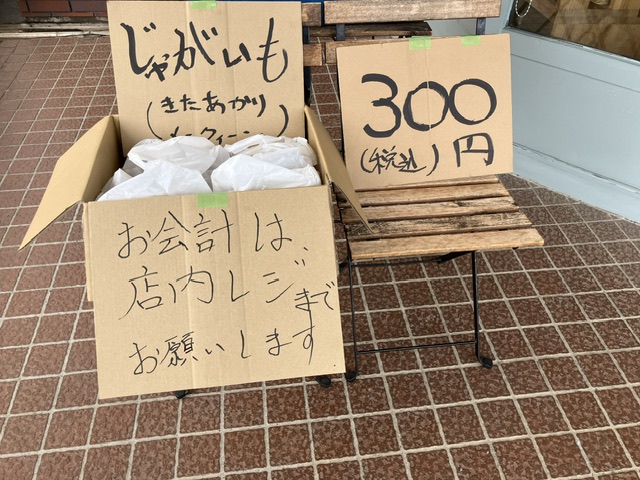 じゃがいも
(きたあかり
メークイーン)
300
(税込)円
お会計は、
店内レジまで
お願いします